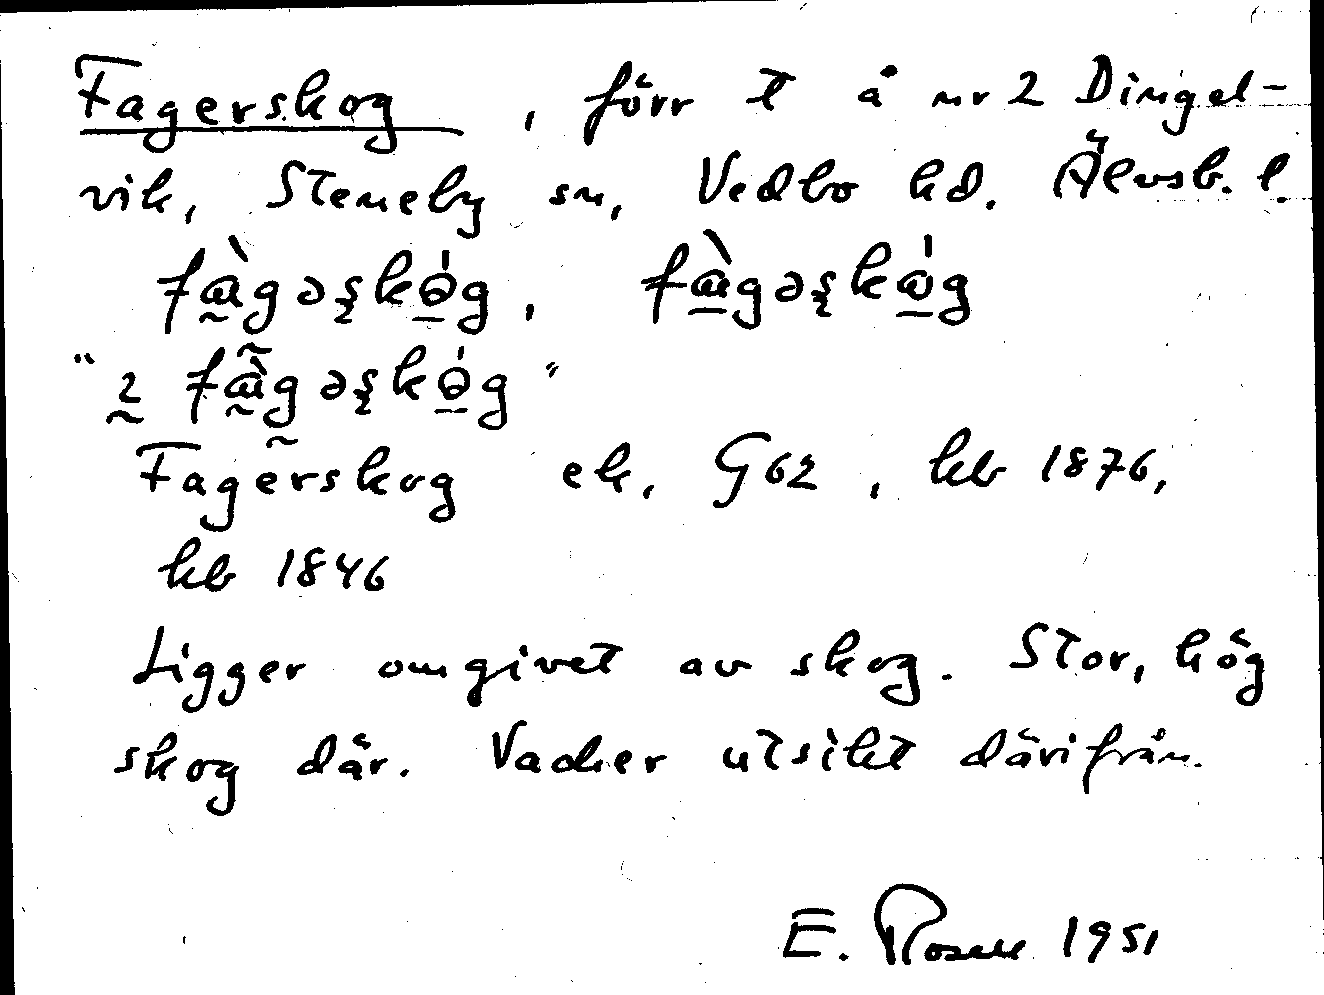 Fagerskog, förr t å nr 2 Dingel-
vik, Steneby sn, Vedbo hd. Älvsb. l.
fàgəʂkóg, fàgəʂkóg
"2 fàgəʂkóg"
Fagerskog ek, G62, kb 1876,
kb 1846
Ligger omgivet av skog. Stor, hög
skog där. Vacker utsikt därifrån.
E. Rosell 1951